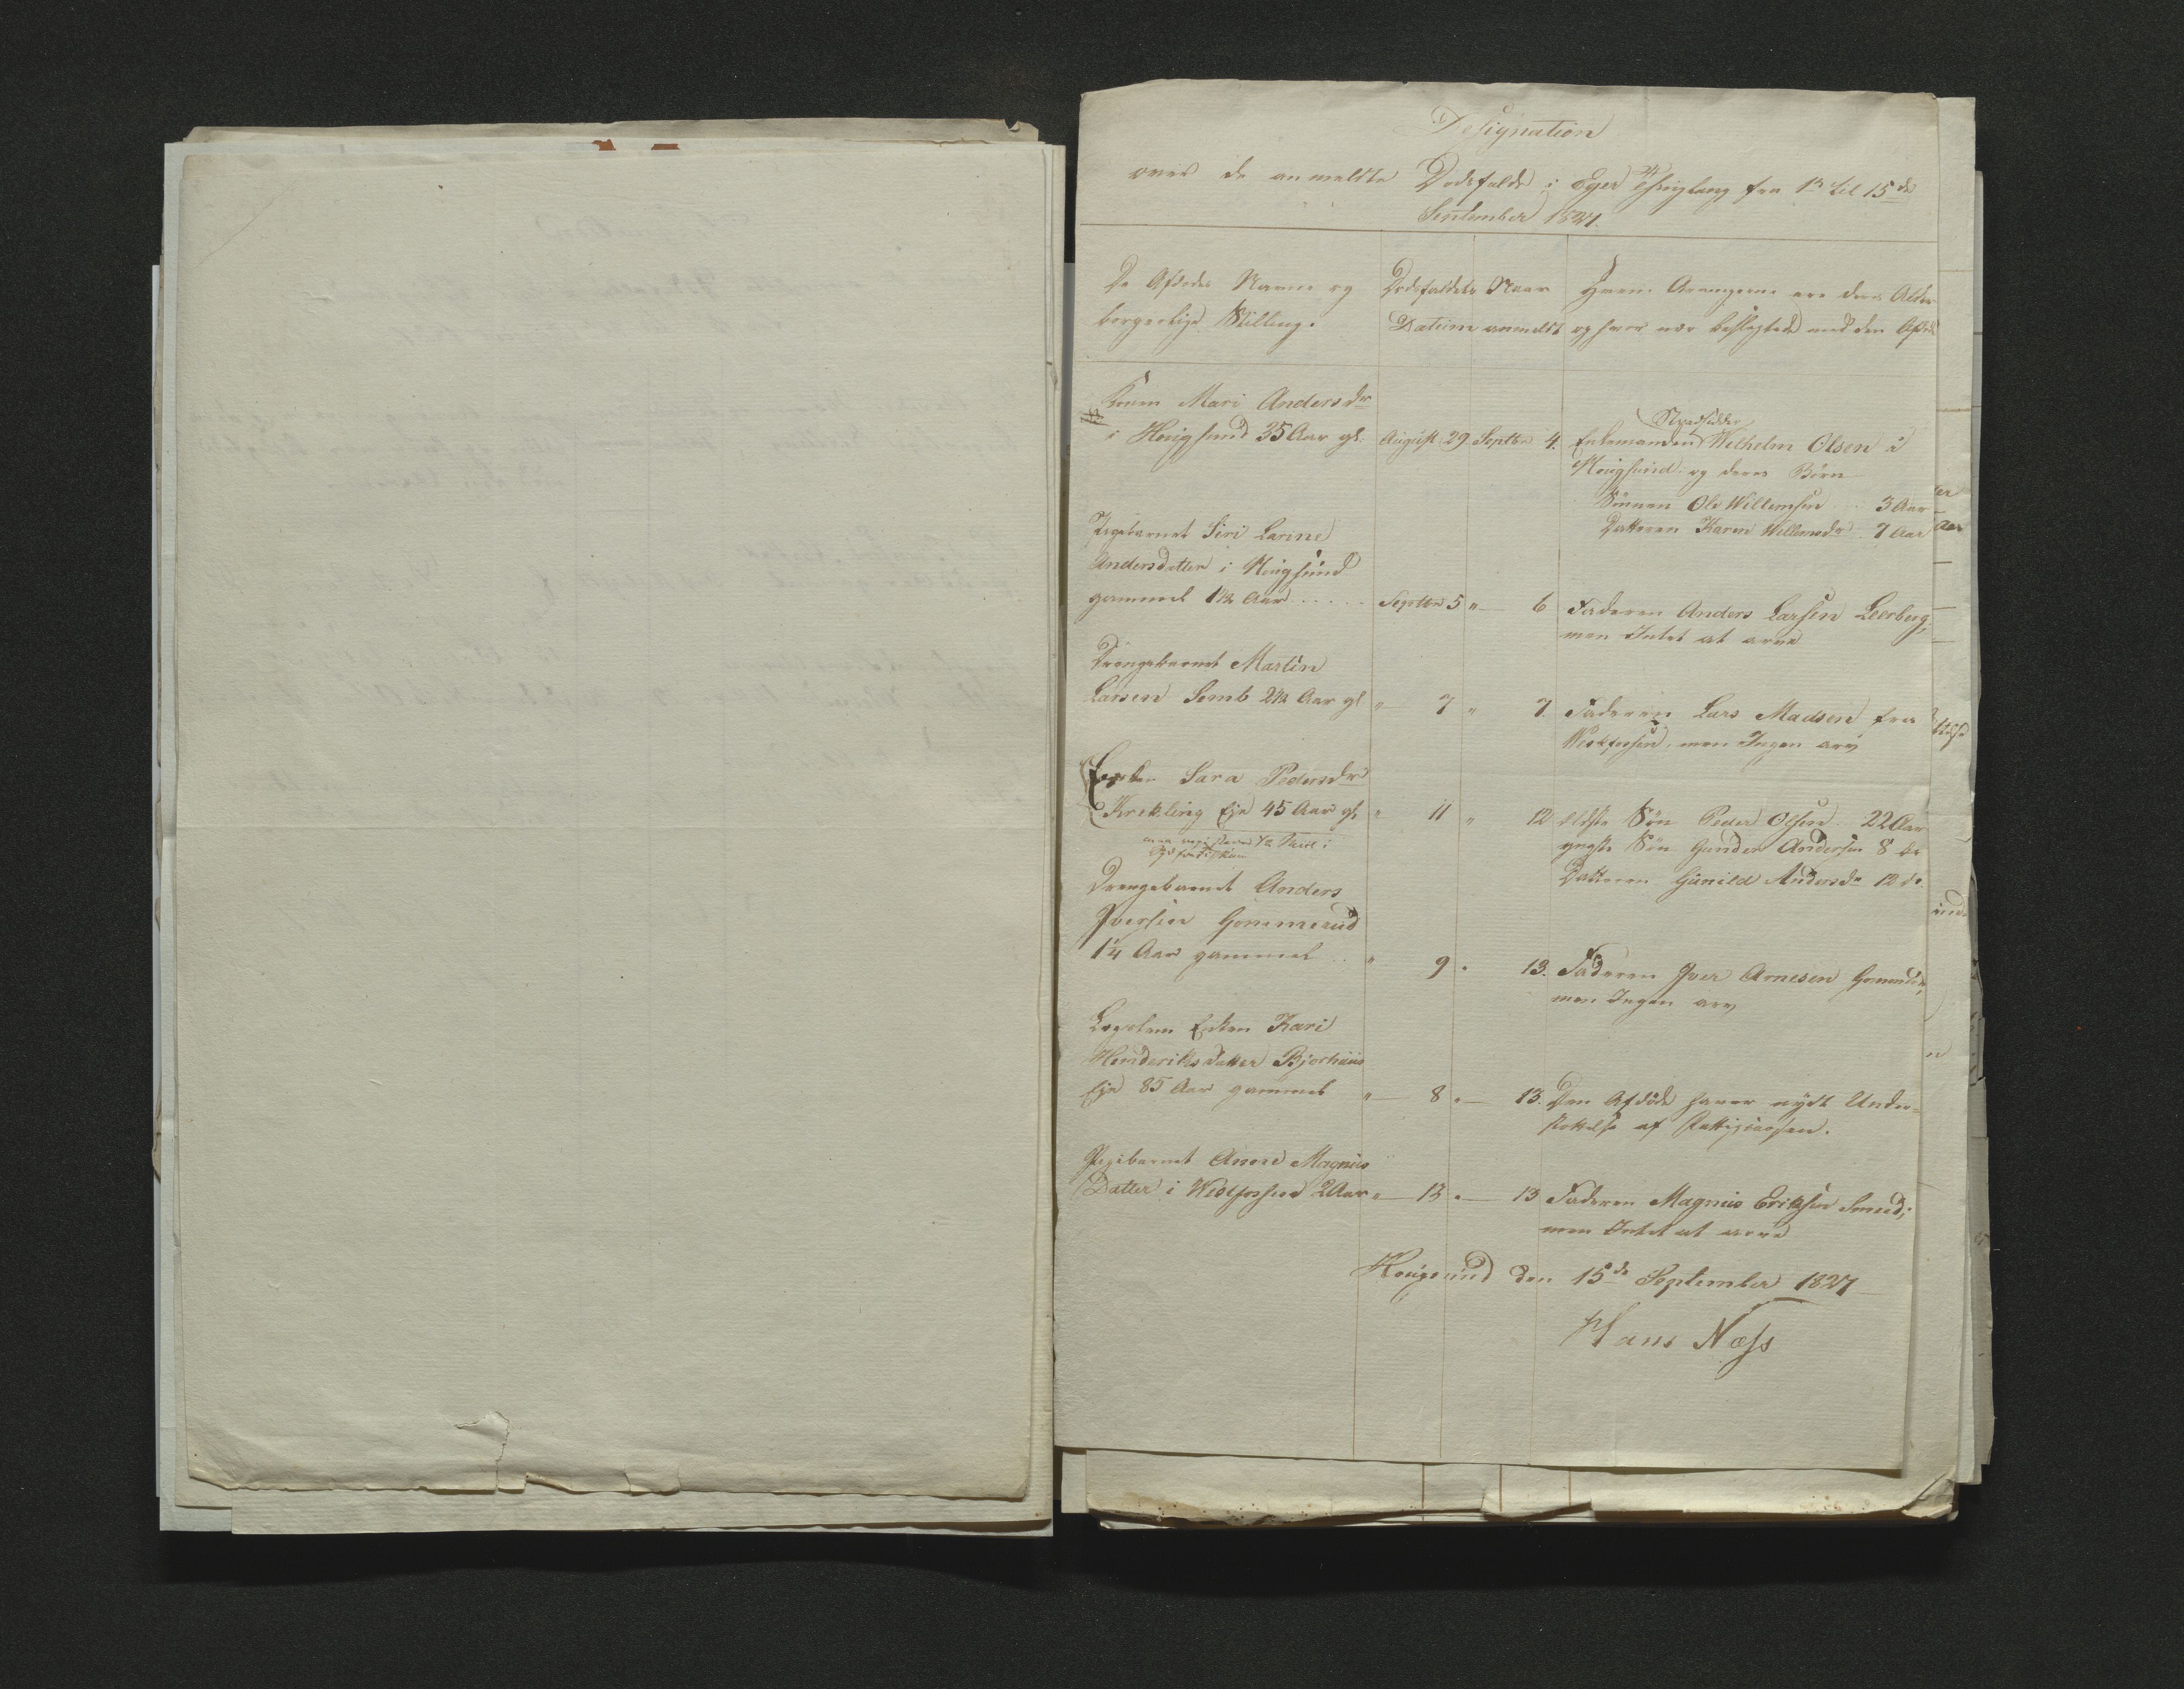 Designation
over de anmeldte Dødsfald i Eger Thinglaug fra 1te til 15de
September 1827.
De Afdødes Navne og
borgerlige Stilling.
Dødsfaldets
Datum
Naar
anmeldt
Hvem Arvingerne ere deres Alder
og hvor nær beslægtede med den Afdøde
Konen Mari Andersdr
i Hougsund 35 Aar gl.
August 29 Septbr 4.
Strandsidder
Enkemanden Wilhelm Olsen i
Hougsund og deres Børn
Sønnen Ole Willumsen 3 Aar
Datteren Karen Willumsdr 7 Aar
Pigebarnet Siri Larine
Andersdatter i Hougsund
gammel 1 1/2 Aar
Septbr 5 " 6
Faderen Anders Larsen Leerberg,
men Intet at arve
Drengebarnet Martin
Larsen Semb 2 1/2 Aar gl
" 7 " 7.
Faderen Lars Madsen fra
Westfossen, men Ingen arv
Enken Sara Pedersdr
Krekling Eje 45 Aar gl
" 11 " 12
ældste Søn Peder Olsen 22 Aar
yngste Søn Gunder Andersen 8 do
Datteren Gunild Andersdr 12 do.
Drengebarnet Anders
Iversen Gommerud
1 1/4 Aar gammel
" 9 " 13.
Faderen Iver Arnesen Gomerud,
men Ingen arv
Lægslem Enken Kari
Henderiksdatter Bjorhuus
Eje 85 Aar gammel
" 8 " 13.
Den Afdøde haver nydt Under-
støttelse af Fattigkassen.
Pigebarnet Anne Magnus
Datter i Westfossen 2 Aar
" 13 " 13
Faderen Magnus Eriksen Smed;
men Intet at arve
Hougsund den 15de September 1827
Hans Næss